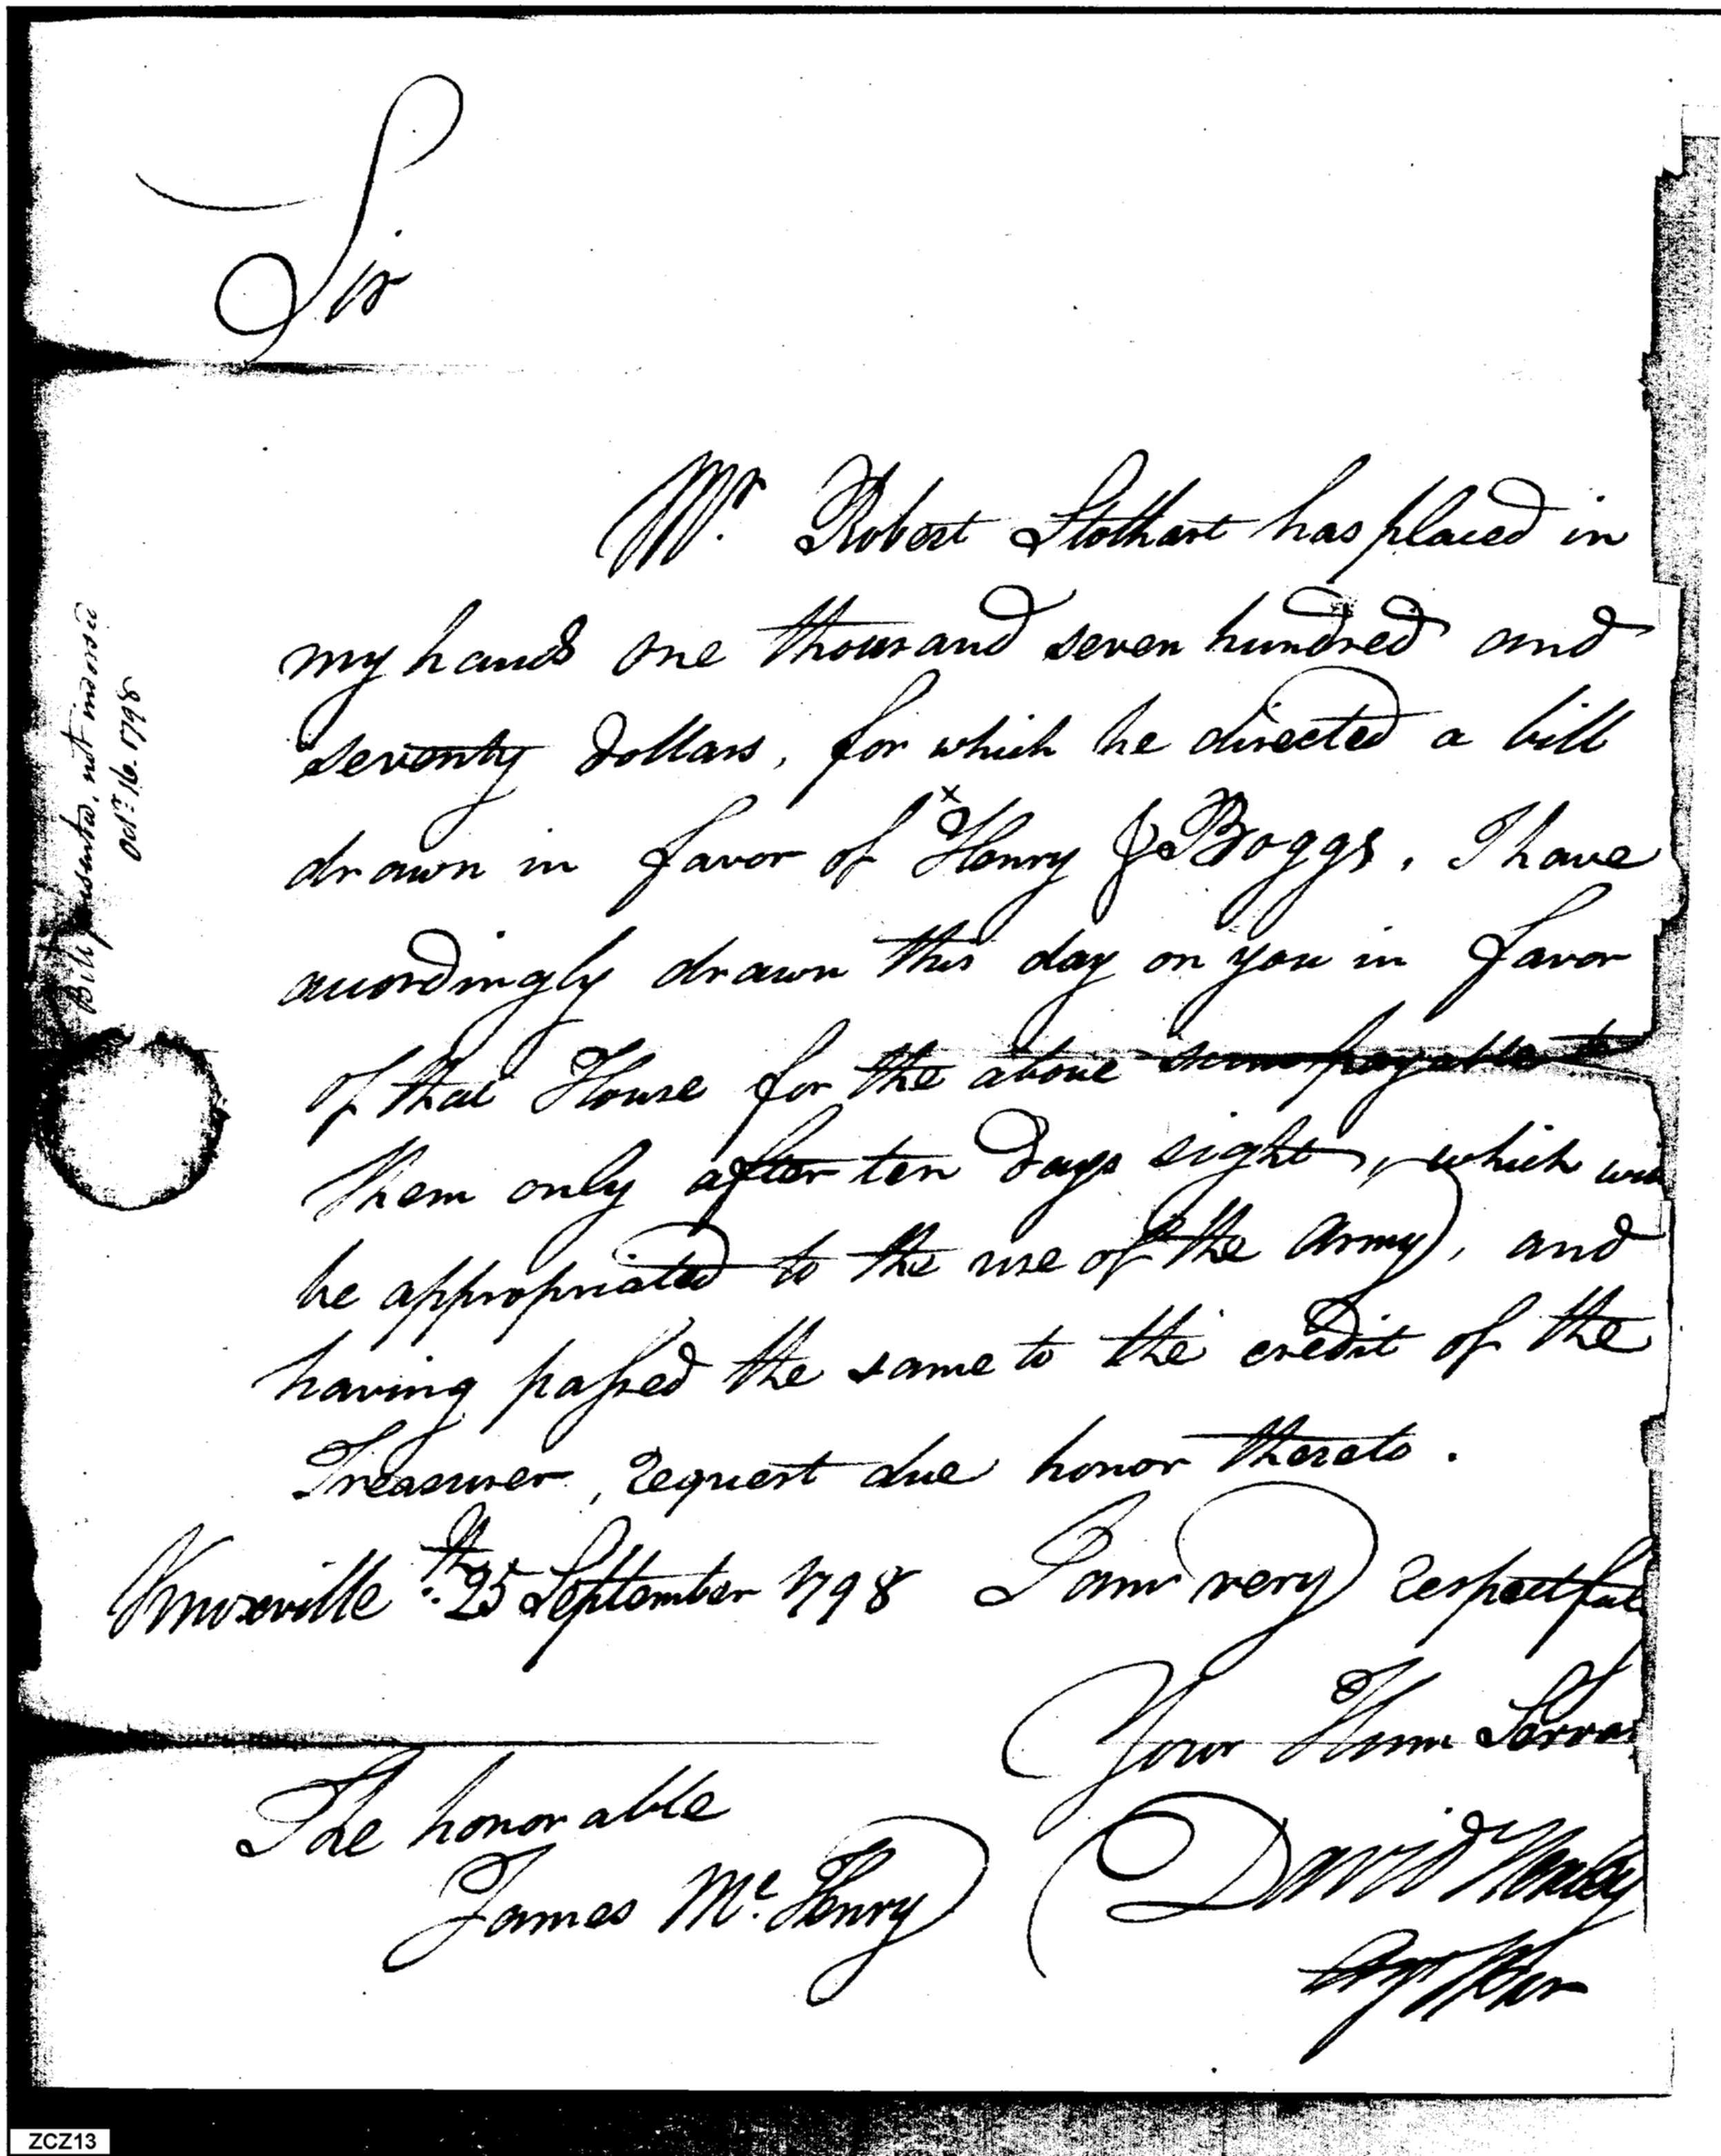 Sir
Mr. Robert Stothart has placed in
my hands one thousand seven hundred and
seventy dollars, for which he directed a bill
drawn in favor of x Henry & Boggs. I have
accordingly drawn this day on you in favor
of that House for the above sum payable to
them only after ten days sight, which will
be appropriated to the use of the army, and
having passed the same to the credit of the
Treasurer, request due honor thereto.
Knoxville 25th September 1798 I am very respectful
Your Hum Servan
The honorable
James Mc. Henry
David Henley
Agt War
Bill presented, not indorsed
Octr. 16. 1798
ZCZ13